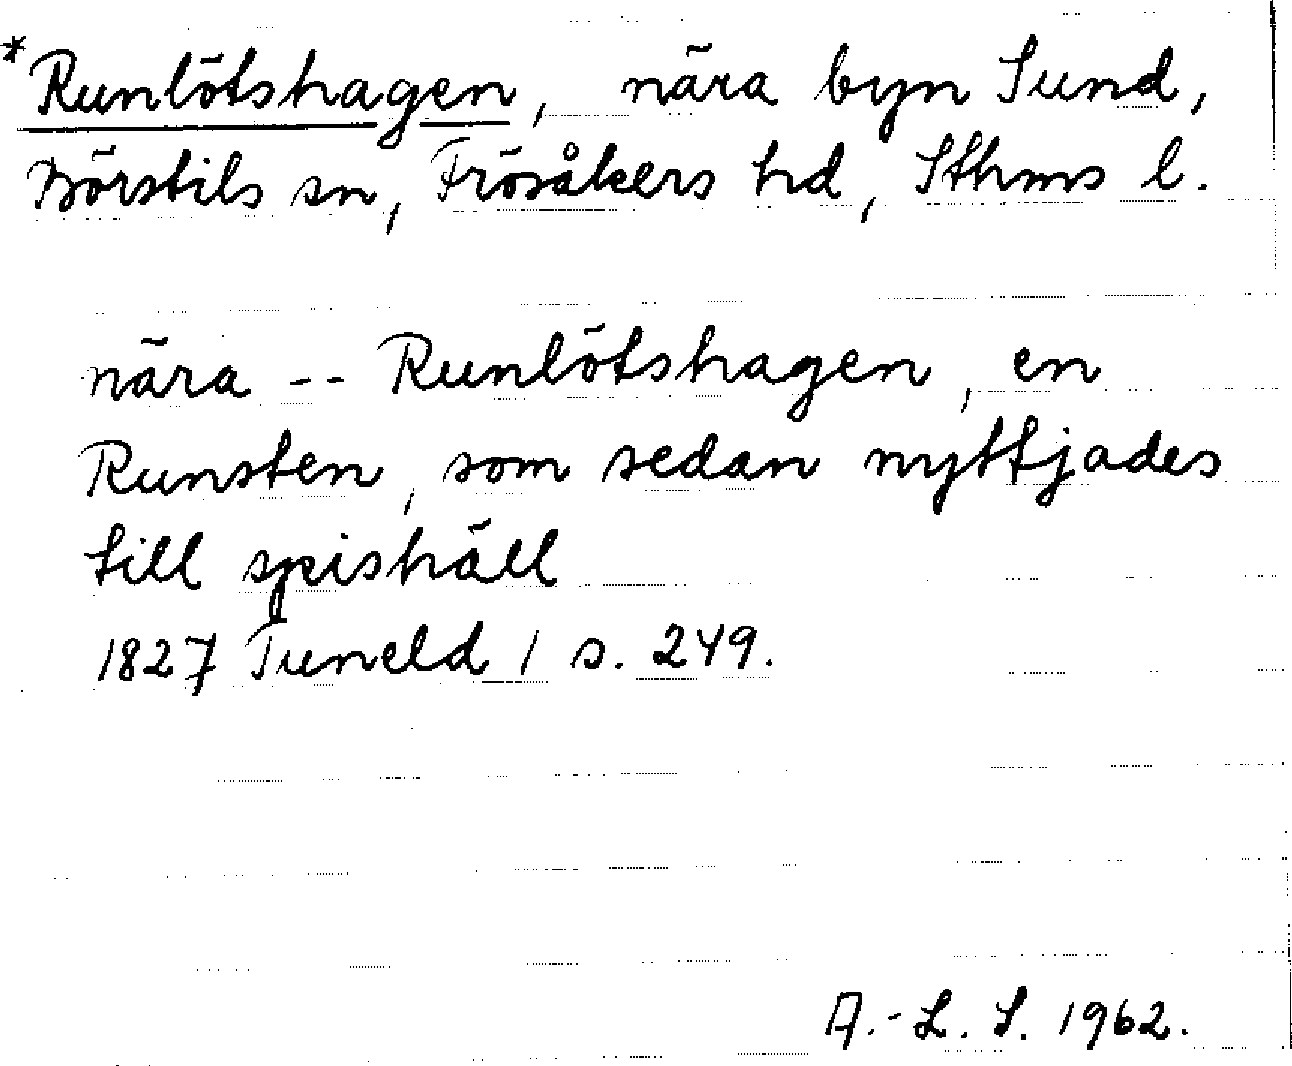 *Runlötshagen, nära byn Sund,
Börstils sn, Frösåkers hd, Sthms l.
nära -- Runlötshagen, en
Runsten, som sedan nyttjades
till spishäll
1827 Tuneld 1 s. 249.
A.-L. S. 1962.